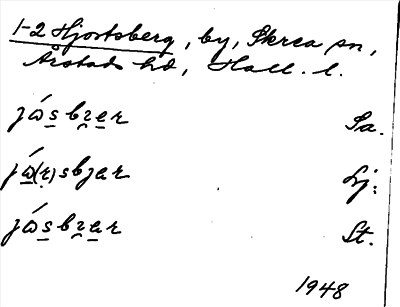 1-2 Hjortsberg, by, Skrea sn,
Årstads hd, Hall. l.
jó̱sbʒer Sa.
jó̱(r)sbjar Lj:
jó̱sbʒar St.
1948